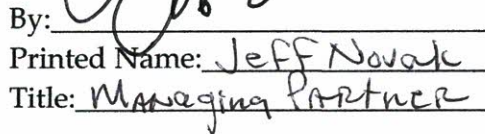 By:
Printed Name: Jeff Novak
Title: Managing Partner